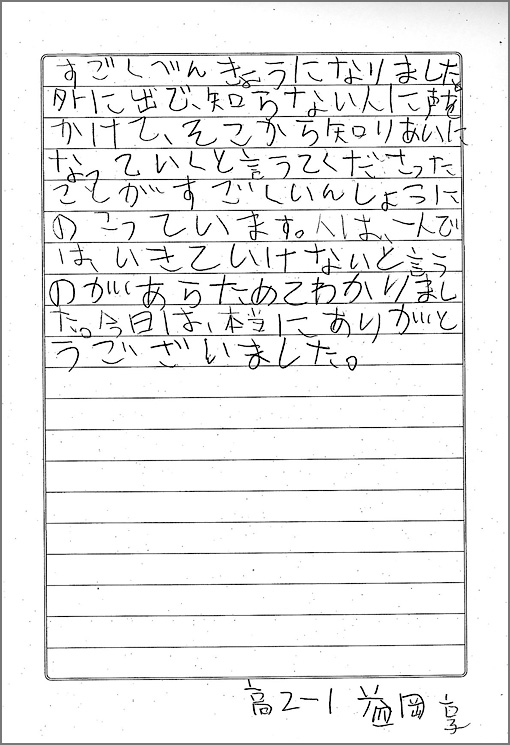 すごくべんきょうになりました。
外に出て、知らない人に声を
かけて、そこから知りあいに
なっていくと言うてくださった
ことがすごくいんしょうに
のこっています。人は、一人で
は、いきていけないと言う
のがあらためてわかりまし
た。今日は、本当にありがと
うございました。
高2-1 益岡 享